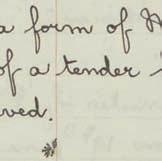 a form of
of a tender
ved.